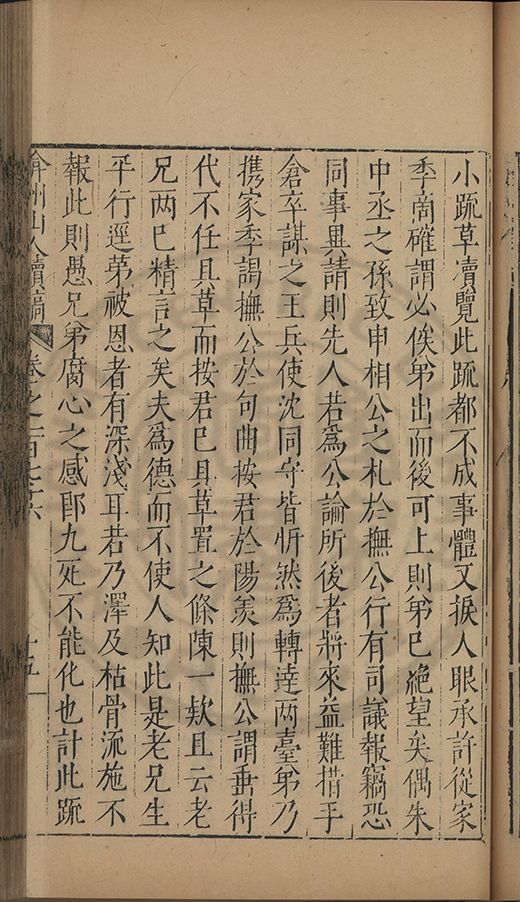 小䟽草凟覽此䟽都不成事體又捩人眼承許從家
季啇確謂必俟苐出而後可上則苐已絶望矣偶朱
中丞之孫致申相公之札於撫公行有司議報竊恐
同事異請則先人若爲公論所後者將來益難措手
倉卒謀之王兵使沈同守皆忻然爲轉達两臺苐乃
携家季謁撫公於句曲按君於陽羡則撫公謂垂得
代不任且草而按君已具草置之條陳一欵且云老
兄两已精言之矣夫爲德而不使人知此是老兄生
平行逕苐被恩者有深淺耳若乃澤及枯骨流施不
報此則愚兄苐腐心之感郎九死不能化也計此䟽
弇州山人續稿 卷之一百七十六 十五